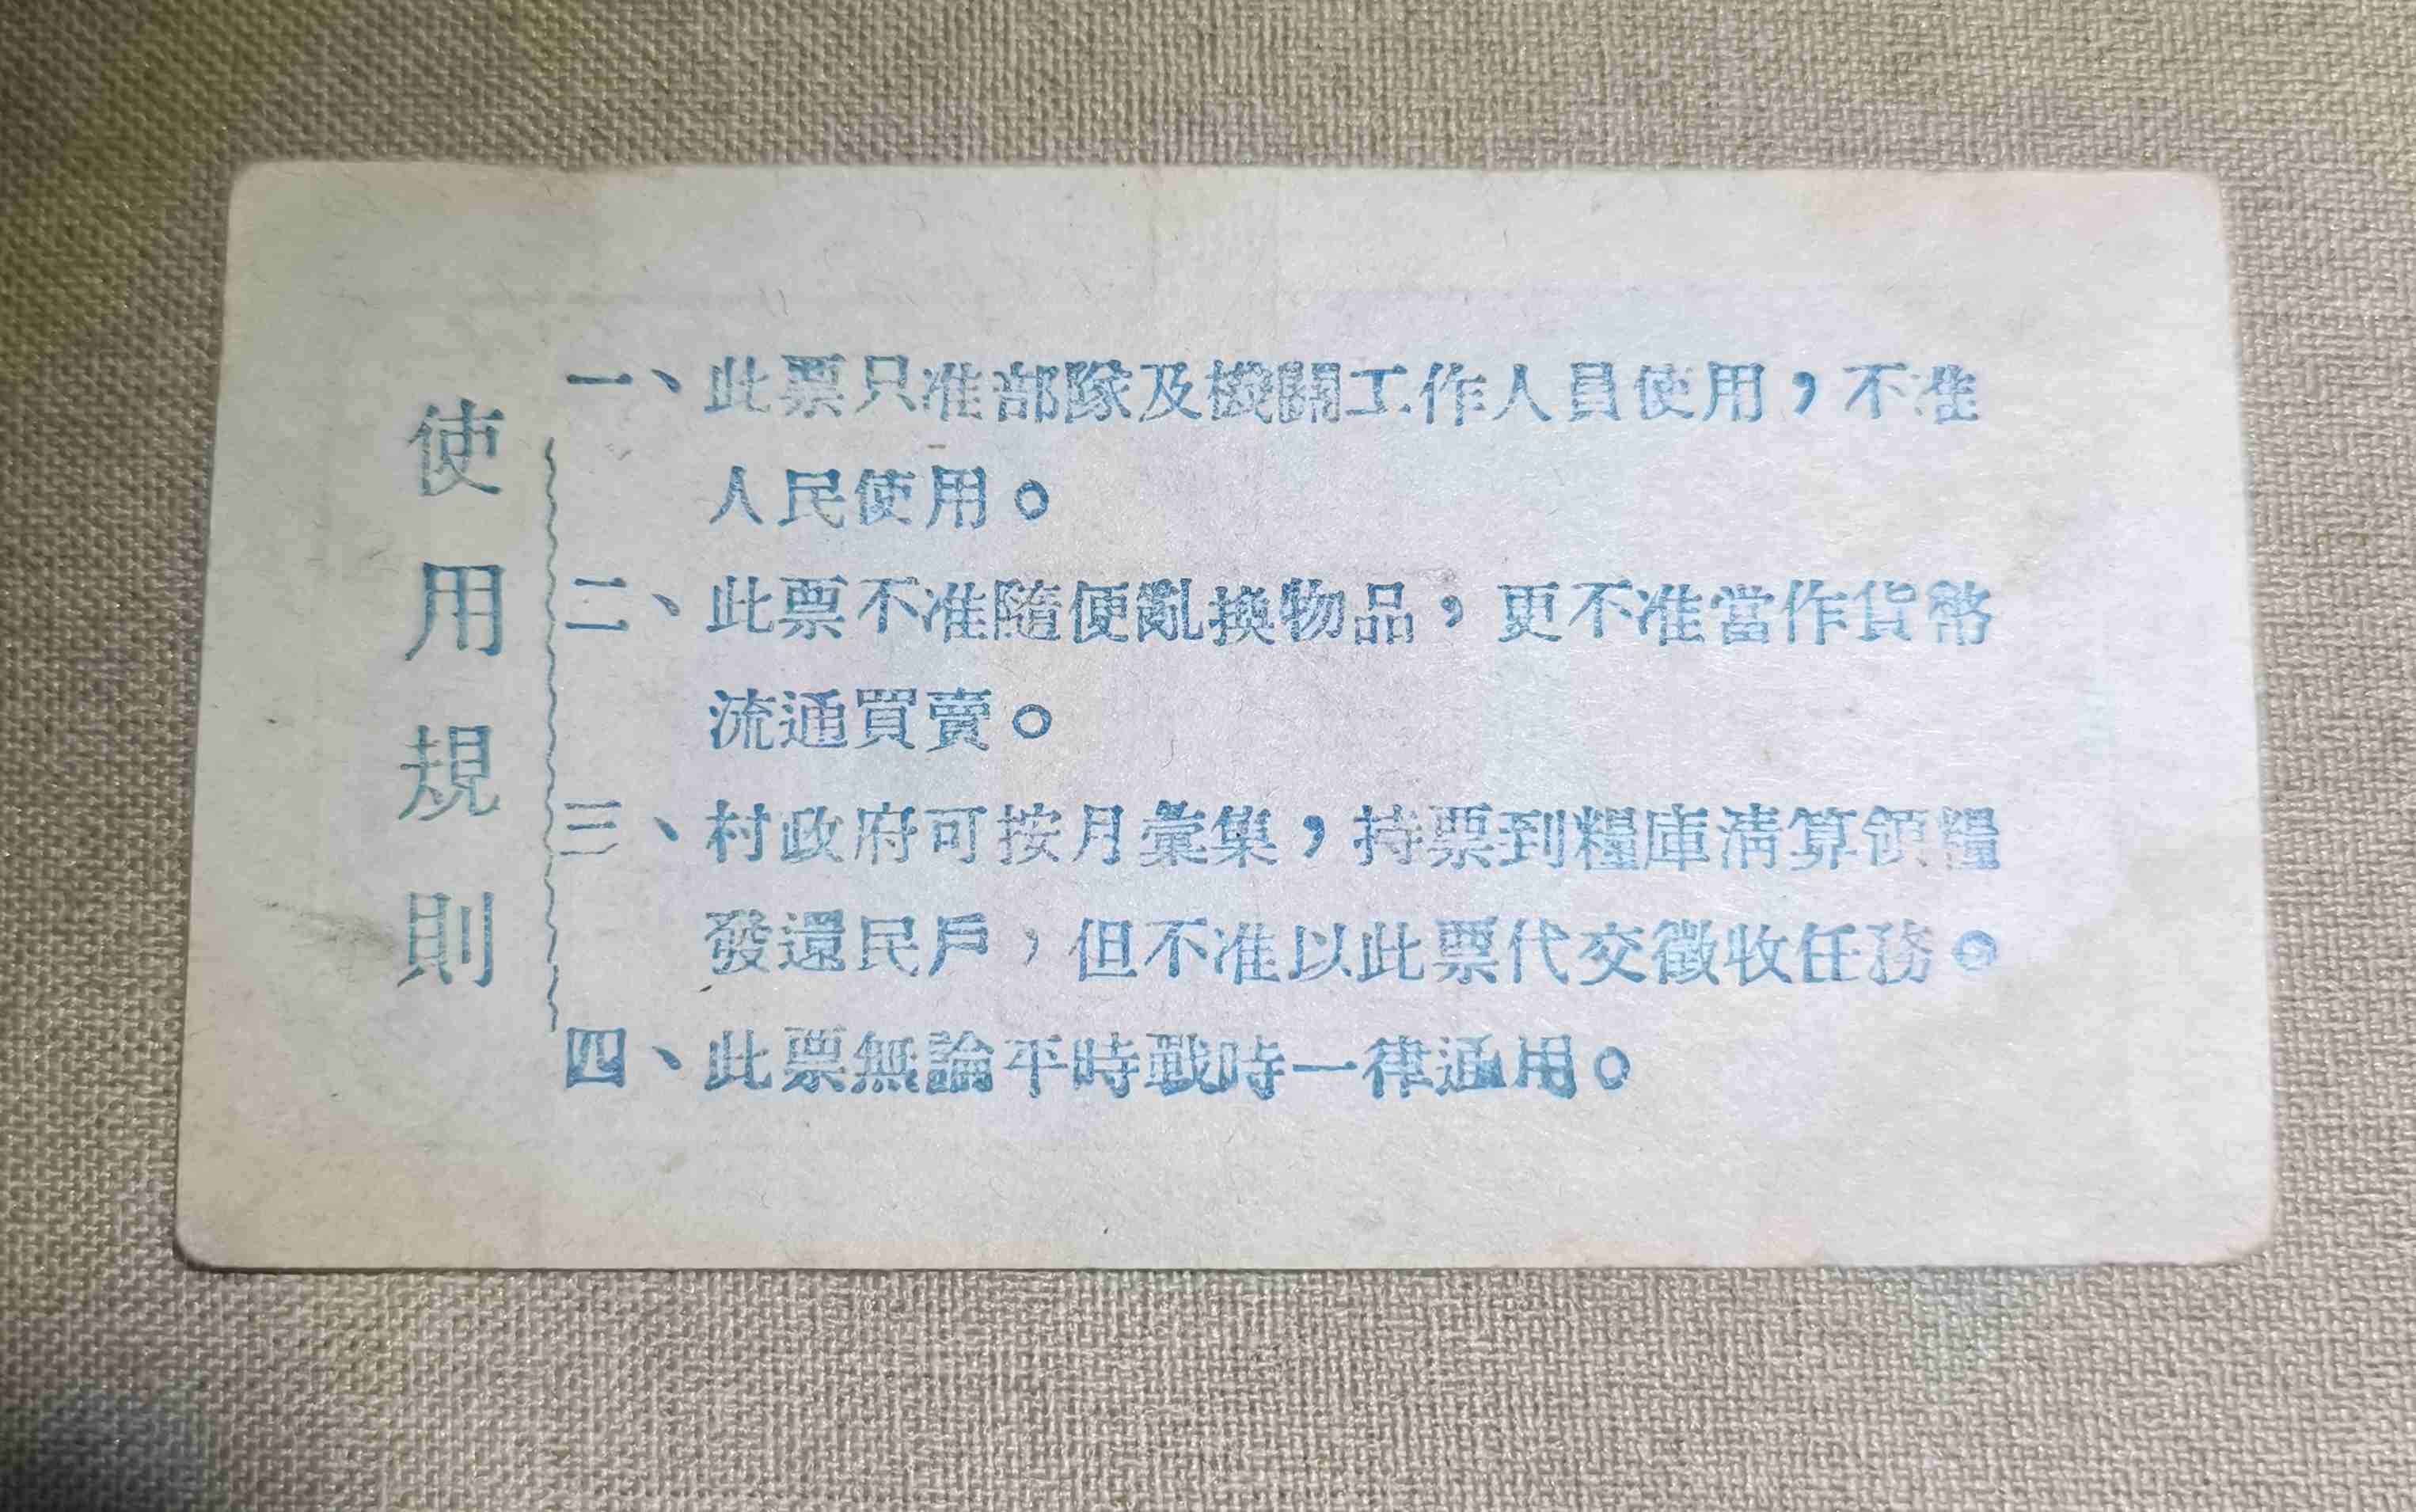 使用規則
一、此票只准部隊及機關工作人員使用，不准
人民使用。
二、此票不准隨便亂換物品，更不准當作貨幣
流通買賣。
三、村政府可按月彙集，持票到糧庫清算領糧
發還民戶，但不准以此票代交徵收任務。
四、此票無論平時戰時一律通用。